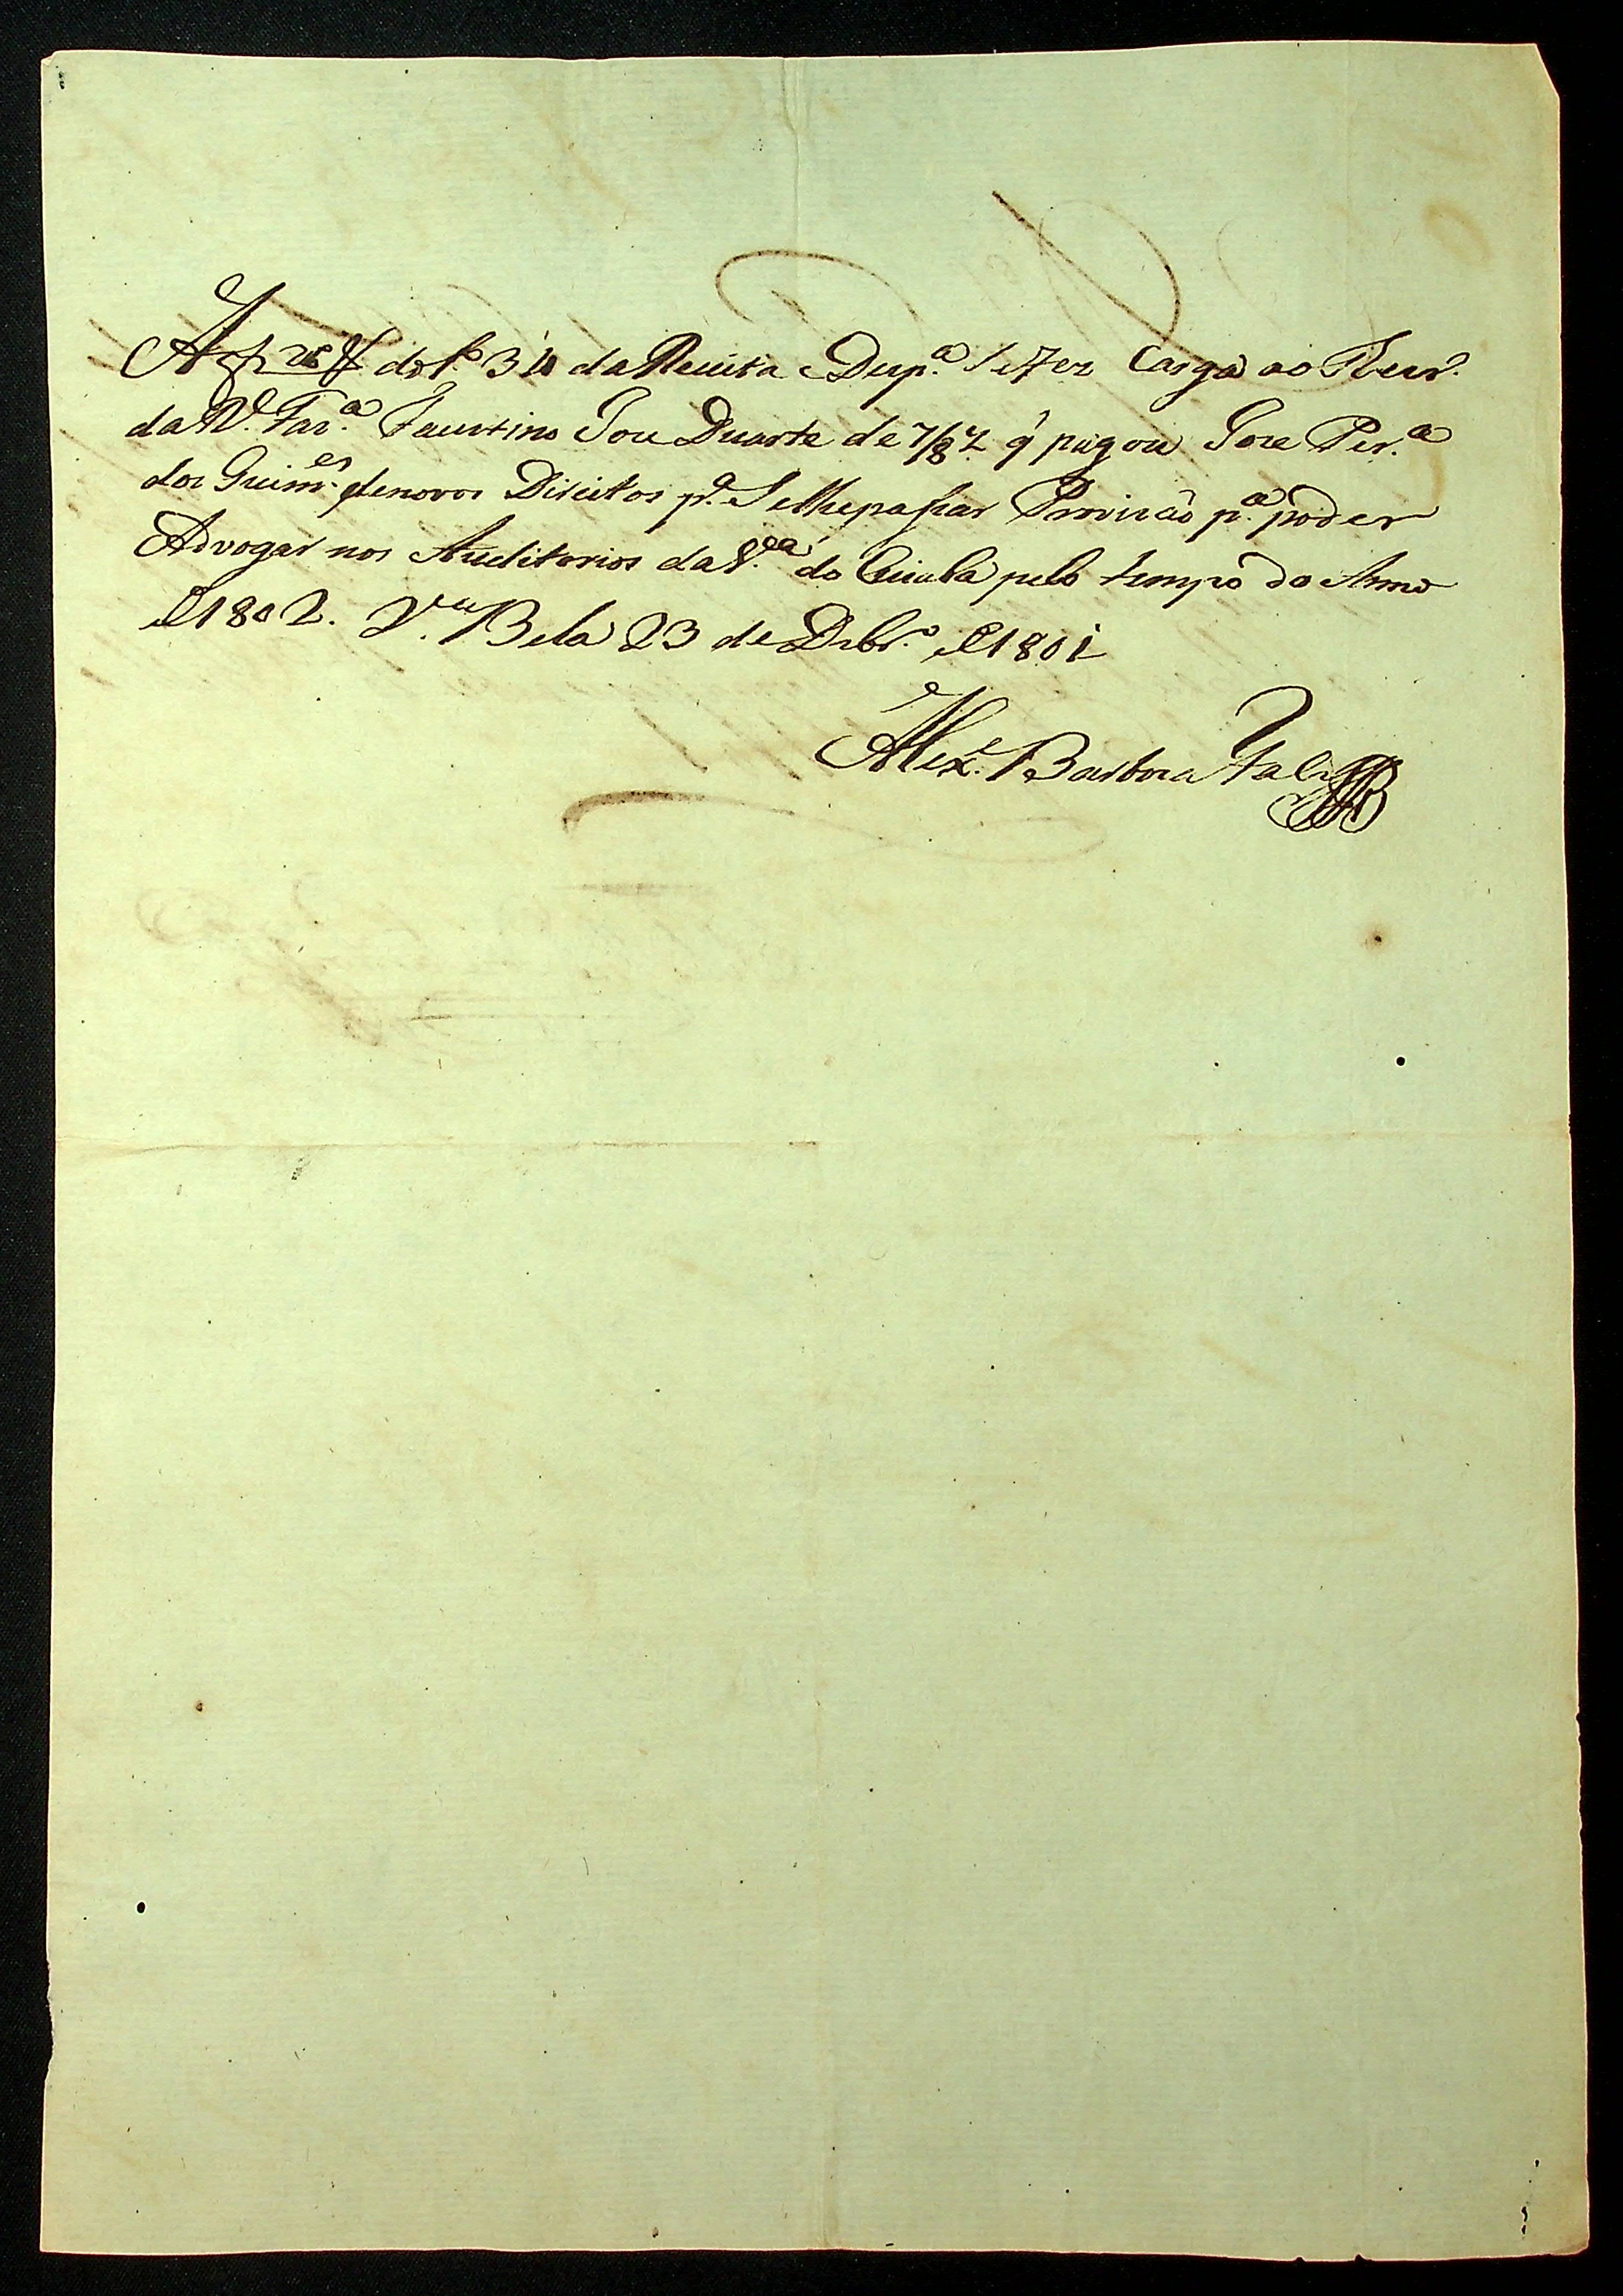 A f do L.º 3º da Receita e Desp.ª Se fez Carga ao Thezr.º
da R.l Faz.ª Faustino Joze Duarte de 7/8 q' pagou Joze Per.ª
dos Guim.es de novos Direitos p.ª Se lhe pasar Provizão p.ª poder
Advogar nos Auditorios da V.ª do Cuiabá pelo tempo do Anno
de 1802. V.ª Bela 23 de Dzbr.º de 1801
Alex.e Barboza